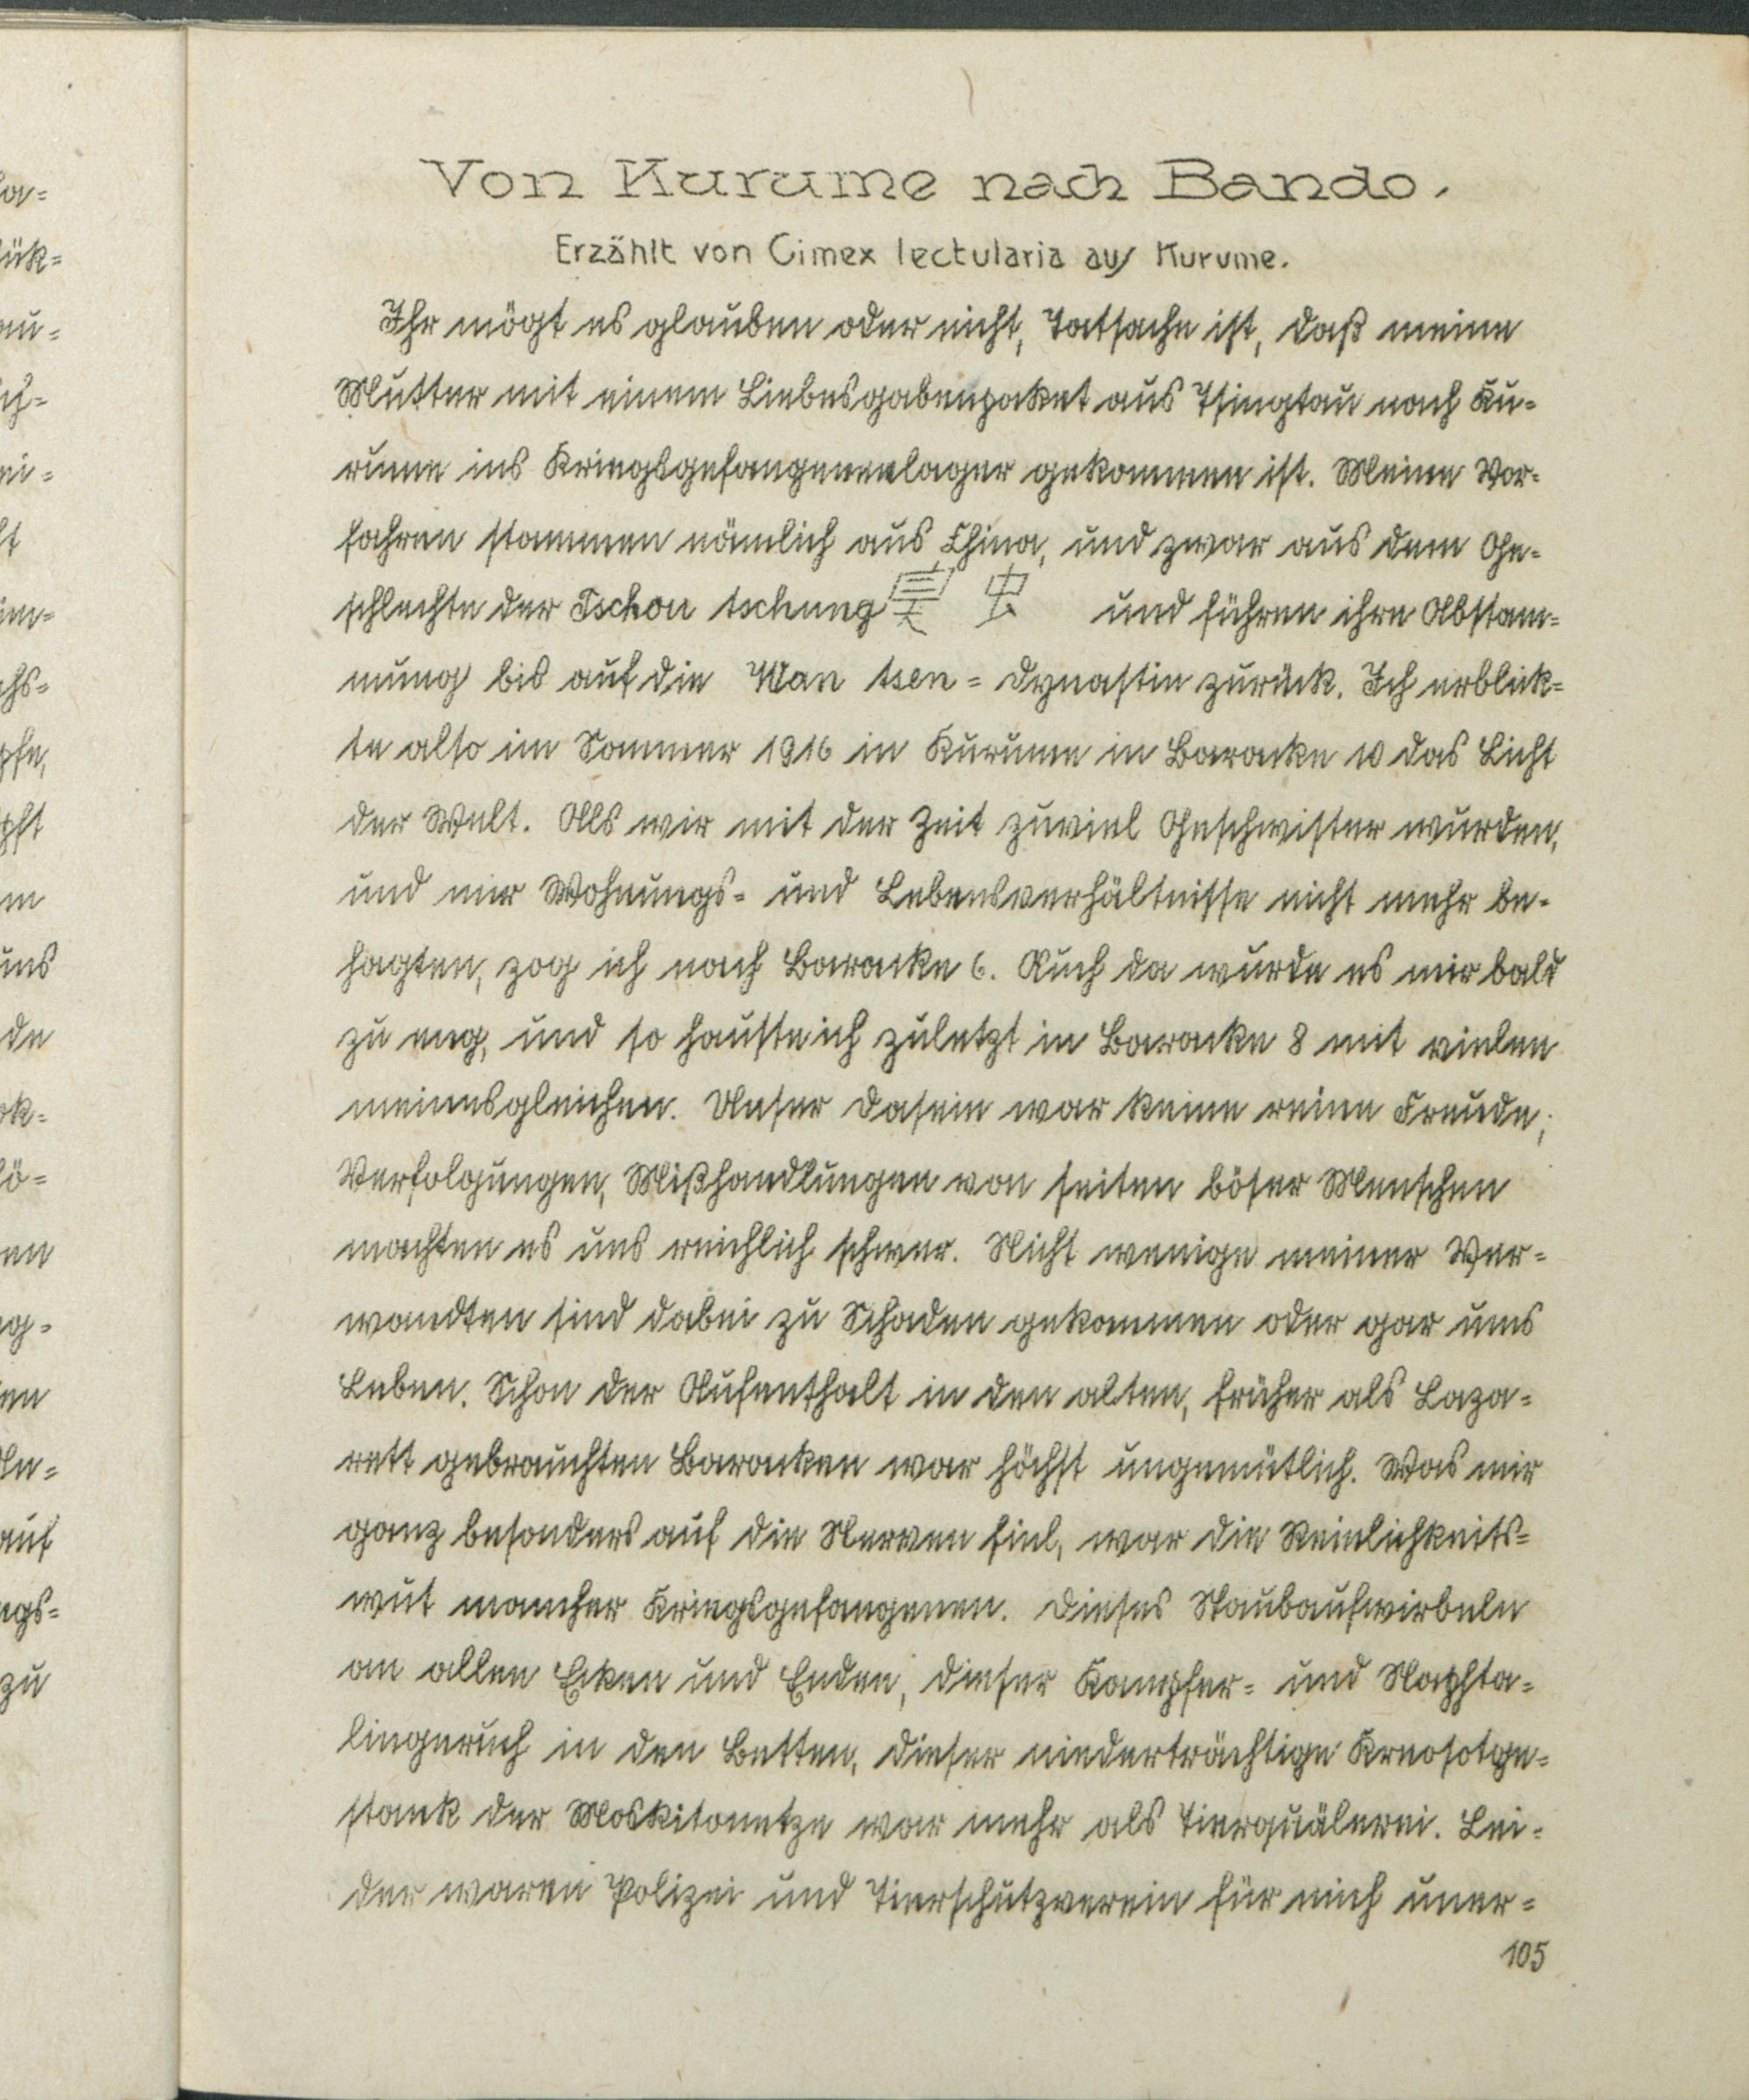 Von Kurume nach Bando.
Erzählt von Cimex lectularia aus Kurume.
Ihr mögt es glauben oder nicht, Tatsache ist, daß meine
Mutter mit einem Liebesgabenpaket aus Tsingtau nach Ku=
rume ins Kriegsgefangenenlager gekommen ist. Meine Vor=
fahren stammen nämlich aus China, und zwar aus dem Ge=
schlechte der Tschou tschung 臭 虫 und führen ihre Abstam=
mung bis auf die Wan tsen = Dynastie zurück. Ich erblick=
te also im Sommer 1916 in Kurume in Baracke 10 das Licht
der Welt. Als wir mit der Zeit zuviel Geschwister wurden,
und mir Wohnungs= und Lebensverhältnisse nicht mehr be=
hagten, zog ich nach Baracke 6. Auch da wurde es mir bald
zu eng, und so hauste ich zuletzt in Baracke 8 mit vielen
meinesgleichen. Unser Dasein war keine reine Freude;
Verfolgungen, Mißhandlungen von seiten böser Menschen
machten es uns reichlich schwer. Nicht wenige meiner Ver=
wandten sind dabei zu Schaden gekommen oder gar ums
Leben. Schon der Aufenthalt in den alten, früher als Laza=
rett gebrauchten Baracken war höchst ungemütlich. Was mir
ganz besonders auf die Nerven fiel, war die Reinlichkeits=
wut mancher Kriegsgefangenen. Dieses Staubaufwirbeln
an allen Ecken und Enden, dieser Kampfer= und Naphta=
lingeruch in den Betten, dieser niederträchtige Kreosotge=
stank der Moskitonetze war mehr als Tierquälerei. Lei=
der waren Polizei und Tierschutzverein für mich uner=
105